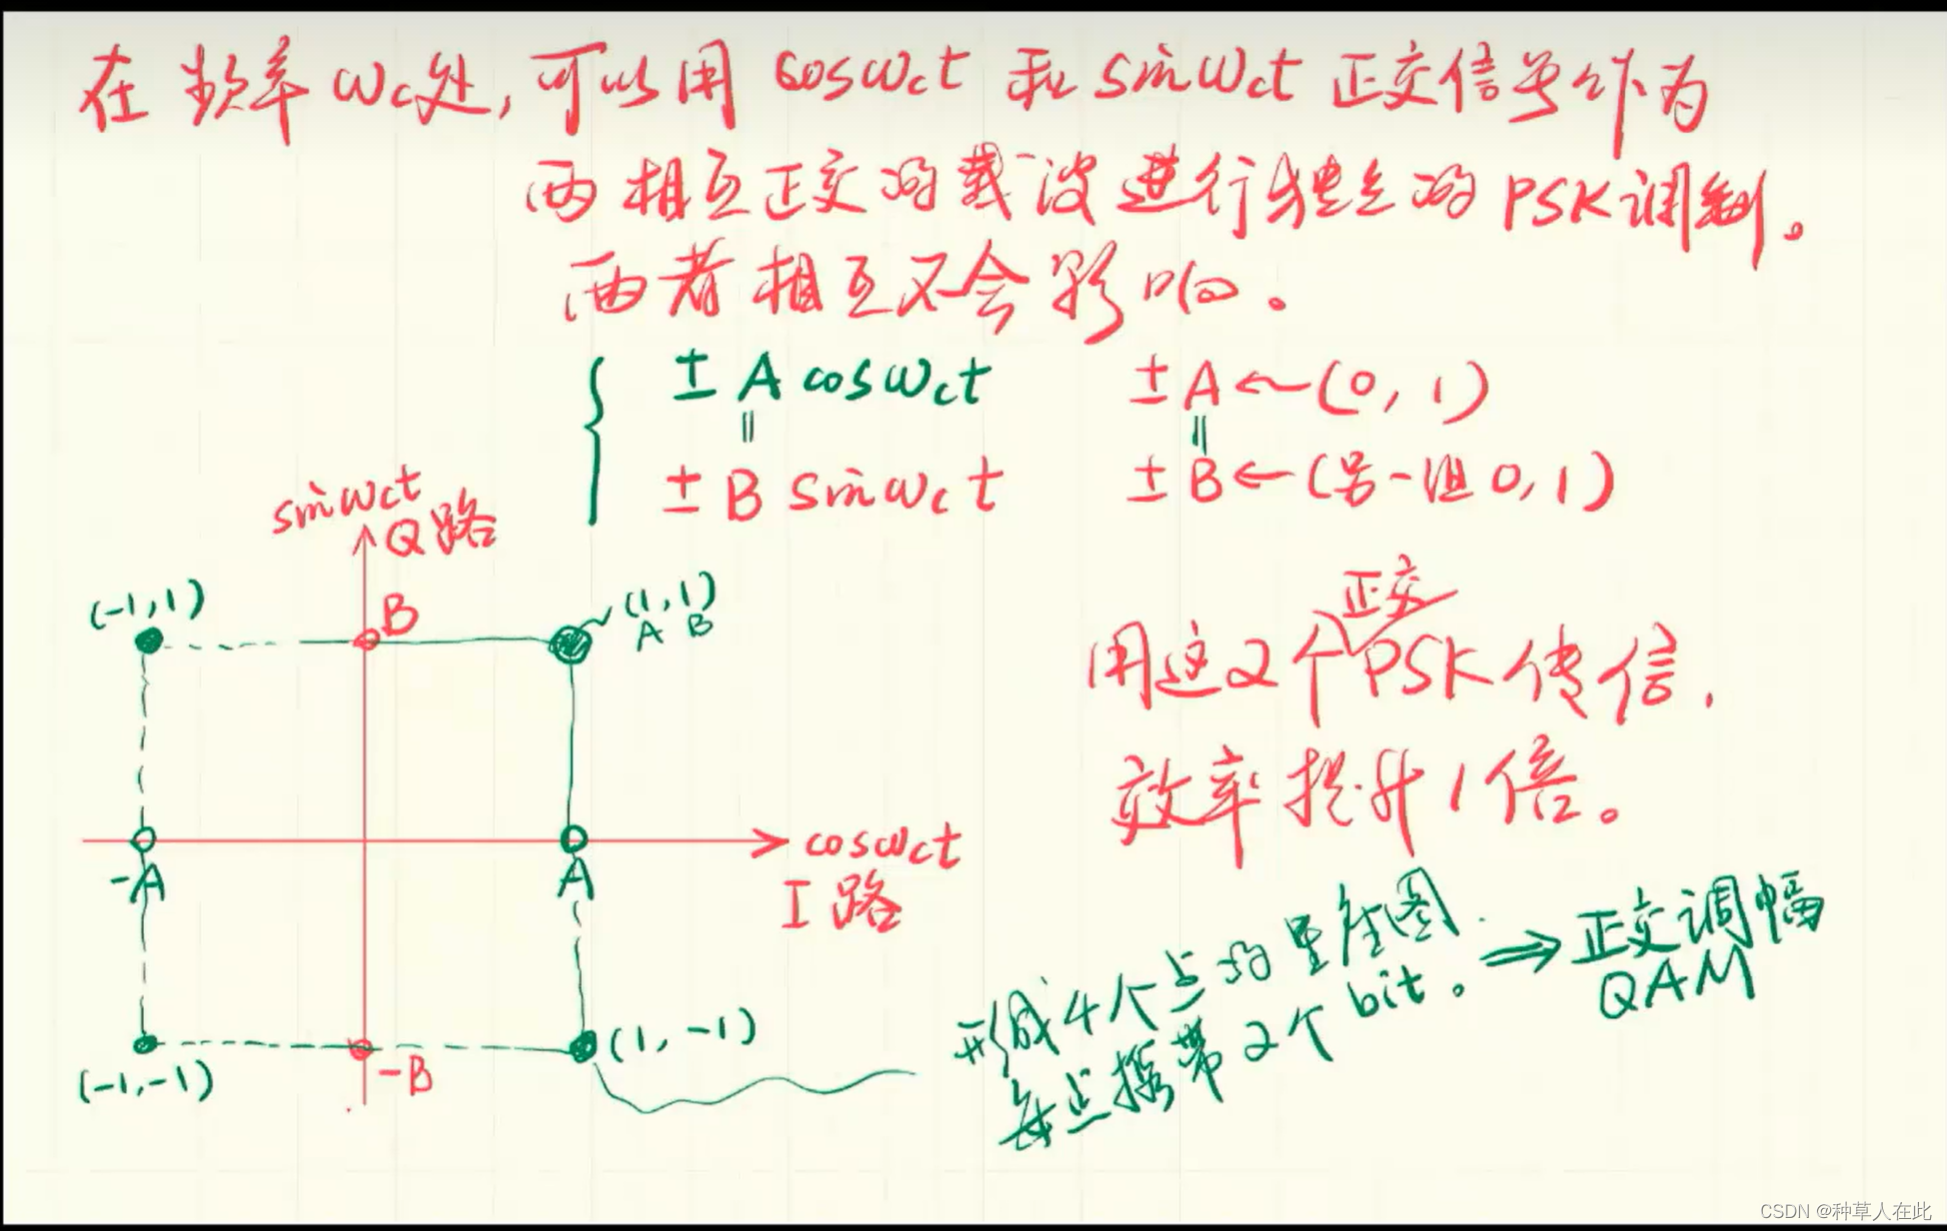 在频率ωc处,可以用 cosωct 和 sinωct 正交信号作为
两相互正交的载波进行独立的PSK调制。
两者相互不会影响。
± A cosωct ± A ← (0, 1)
|| ||
± B sinωct ± B ← (另一组 0, 1)
sinωct
Q路
(-1,1)
B
(1,1)
A B
正交
用这2个PSK传信,
效率提升1倍。
-A
A
cosωct
I路
(-1,-1)
-B
(1,-1)
形成4个点的星座图. ⇒ 正交调幅
每点携带2个bit。 QAM
CSDN @种草人在此